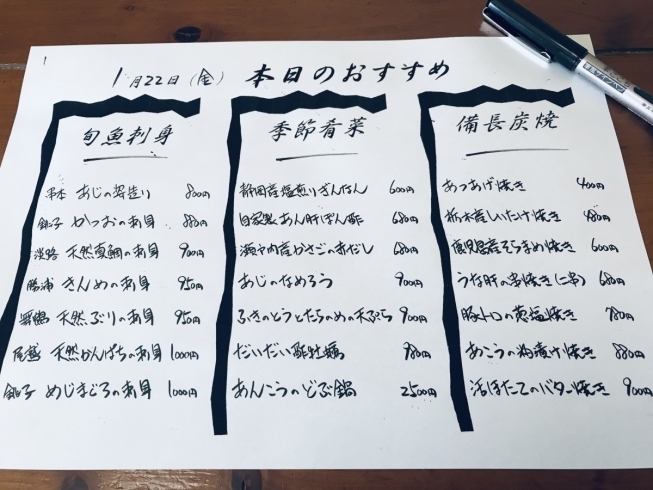 1月22日(金) 本日のおすすめ
旬魚刺身
串本 あじの姿造り 800円
銚子 かつおの刺身 880円
淡路 天然真鯛の刺身 900円
勝浦 きんめの刺身 950円
舞鶴 天然ぶりの刺身 950円
尾鷲 天然かんぱちの刺身 1000円
銚子 めじまぐろの刺身 1000円
季節肴菜
静岡産塩煎りぎんなん 600円
自家製あん肝ぽん酢 680円
瀬戸内産かさごの赤だし 680円
あじのなめろう 900円
ふきのとうとたらのめの天ぷら 900円
だいだい酢牡蠣 980円
あんこうのどぶ鍋 2500円
備長炭焼
あつあげ焼き 400円
栃木産しいたけ焼き 480円
鹿児島産そらまめ焼き 600円
うな肝の串焼き(二串) 680円
豚トロの葱塩焼き 780円
あこうの粕漬け焼き 880円
活ほたてのバター焼き 900円